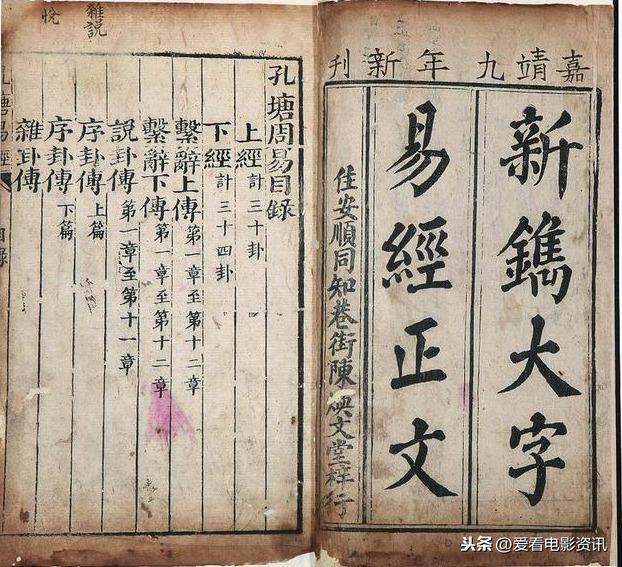 嘉靖九年新刊
新鐫大字
易經正文
住安順同知巷街陳𬒗文堂梓行
孔塘周易目録
上經計三十卦
下經計三十四卦
繫辭上傳第一章至第十二章
繫辭下傳第一章至第十二章
説卦傳第一章至第十一章
序卦傳上篇
序卦傳下篇
雜卦傳
雜説
悅
头条 @爱看电影资讯